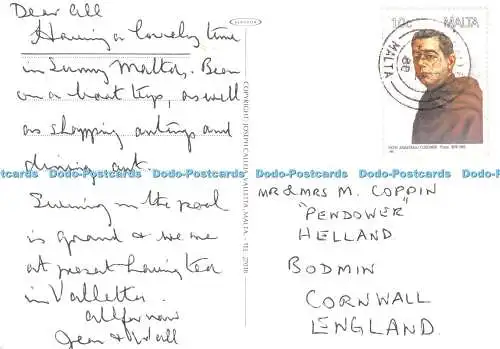 Dear All
Having a lovely time
in Sunny Malta. Been
on a boat trip, as well
as shopping outings and
dining out.
Swimming in the pool
is grand & we are
at present having tea
in Valletta.
All for now
Jean & Wall
COPYRIGHT JOSEPH GALEA, VALLETTA, MALTA - TEL.
10c MALTA
MALTA
MR & MRS M. COPPIN
"PENDOWER"
HELLAND
BODMIN
CORNWALL
ENGLAND.
Dodo-Postcards Dodo-Postcards Dodo-Postcards Dodo-Postcards